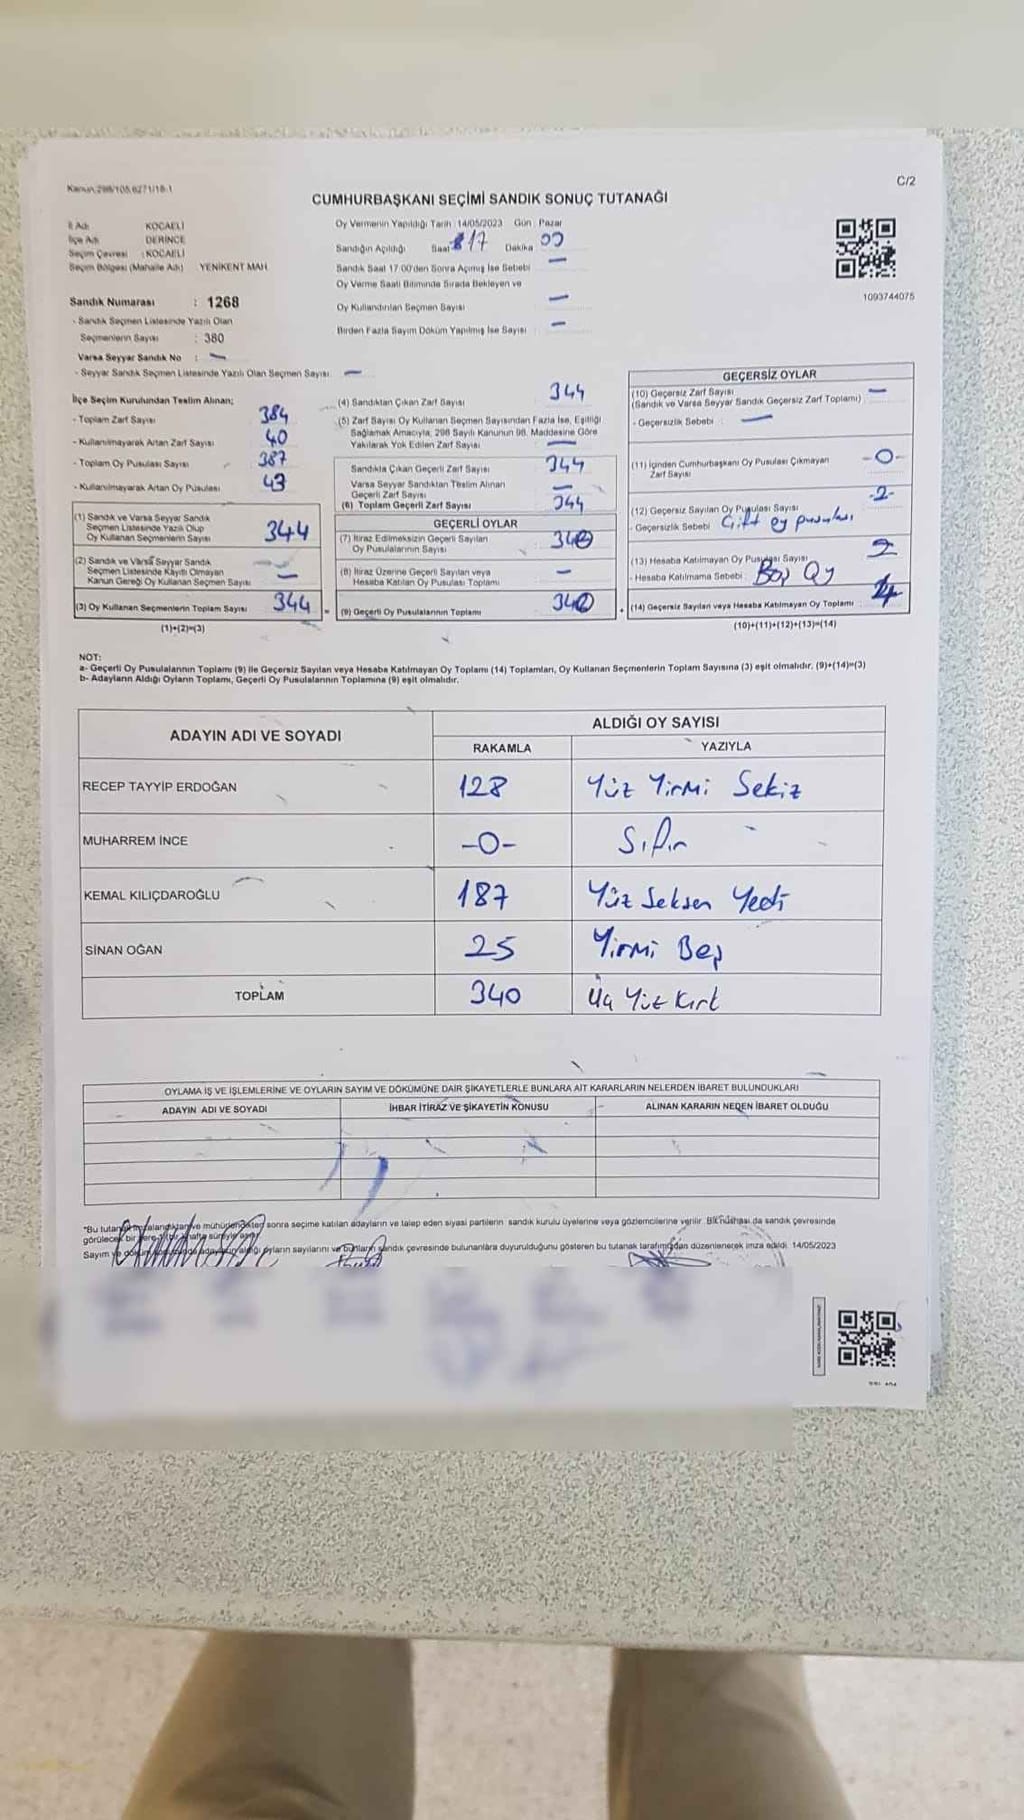 Kanun:298/105,6271/18-1
C/2
CUMHURBAŞKANI SEÇİMİ SANDIK SONUÇ TUTANAĞI
İl Adı : KOCAELİ
İlçe Adı : DERİNCE
Seçim Çevresi : KOCAELİ
Seçim Bölgesi (Mahalle Adı) YENİKENT MAH.
Sandık Numarası : 1268
- Sandık Seçmen Listesinde Yazılı Olan
Seçmenlerin Sayısı : 380
Varsa Seyyar Sandık No : —
- Seyyar Sandık Seçmen Listesinde Yazılı Olan Seçmen Sayısı: —
Oy Vermenin Yapıldığı Tarih 14/05/2023 Gün Pazar
Sandığın Açıldığı Saat 17 Dakika 00
Sandık Saat 17:00'den Sonra Açımış İse Sebebi —
Oy Verme Saati Bitiminde Sırada Bekleyen ve
Oy Kullandırılan Seçmen Sayısı —
Birden Fazla Sayım Döküm Yapılmış İse Sayısı —
1093744075
İlçe Seçim Kurulundan Teslim Alınan;
- Toplam Zarf Sayısı 384
- Kullanılmayarak Artan Zarf Sayısı 40
- Toplam Oy Pusulası Sayısı 387
- Kullanılmayarak Artan Oy Pusulası 43
(1) Sandık ve Varsa Seyyar Sandık
Seçmen Listesinde Yazılı Olup
Oy Kullanan Seçmenlerin Sayısı 344
(2) Sandık ve Varsa Seyyar Sandık
Seçmen Listesinde Kaydı Olmayan
Kanun Gereği Oy Kullanan Seçmen Sayısı —
(3) Oy Kullanan Seçmenlerin Toplam Sayısı 344 =
(1)+(2)=(3)
(4) Sandıktan Çıkan Zarf Sayısı 344
(5) Zarf Sayısı Oy Kullanan Seçmen Sayısından Fazla İse, Eşitliği
Sağlamak Amacıyla, 298 Sayılı Kanunun 98. Maddesine Göre
Yakılarak Yok Edilen Zarf Sayısı —
Sandıkta Çıkan Geçerli Zarf Sayısı 344
Varsa Seyyar Sandıktan Teslim Alınan
Geçerli Zarf Sayısı —
(6) Toplam Geçerli Zarf Sayısı 344
GEÇERLİ OYLAR
(7) İtiraz Edilmeksizin Geçerli Sayılan
Oy Pusulalarının Sayısı 340
(8) İtiraz Üzerine Geçerli Sayılan veya
Hesaba Katılan Oy Pusulası Toplamı —
(9) Geçerli Oy Pusulalarının Toplamı 340 +
GEÇERSİZ OYLAR
(10) Geçersiz Zarf Sayısı —
(Sandık ve Varsa Seyyar Sandık Geçersiz Zarf Toplamı)
- Geçersizlik Sebebi : —
(11) İçinden Cumhurbaşkanı Oy Pusulası Çıkmayan
Zarf Sayısı -0-
(12) Geçersiz Sayılan Oy Pusulası Sayısı -2-
- Geçersizlik Sebebi Çift oy pusulası
(13) Hesaba Katılmayan Oy Pusulası Sayısı 2
- Hesaba Katılmama Sebebi Boş Oy
(14) Geçersiz Sayılan veya Hesaba Katılmayan Oy Toplamı 4
(10)+(11)+(12)+(13)=(14)
NOT:
a- Geçerli Oy Pusulalarının Toplamı (9) ile Geçersiz Sayılan veya Hesaba Katılmayan Oy Toplamı (14) Toplamları, Oy Kullanan Seçmenlerin Toplam Sayısına (3) eşit olmalıdır. (9)+(14)=(3)
b- Adayların Aldığı Oyların Toplamı, Geçerli Oy Pusulalarının Toplamına (9) eşit olmalıdır.
ADAYIN ADI VE SOYADI
ALDIĞI OY SAYISI
RAKAMLA YAZIYLA
RECEP TAYYİP ERDOĞAN 128 Yüz Yirmi Sekiz
MUHARREM İNCE -0- Sıfır
KEMAL KILIÇDAROĞLU 187 Yüz Seksen Yedi
SİNAN OĞAN 25 Yirmi Beş
TOPLAM 340 Üç Yüz Kırk
OYLAMA İŞ VE İŞLEMLERİNE VE OYLARIN SAYIM VE DÖKÜMÜNE DAİR ŞİKAYETLERLE BUNLARA AİT KARARLARIN NELERDEN İBARET BULUNDUKLARI
ADAYIN ADI VE SOYADI İHBAR İTİRAZ VE ŞİKAYETİN KONUSU ALINAN KARARIN NEDEN İBARET OLDUĞU
*Bu tutanak imzalandıktan ve mühürlendikten sonra seçime katılan adayların ve talep eden siyasi partilerin sandık kurulu üyelerine veya gözlemcilerine verilir. Bir nüshası da sandık çevresinde
görülecek bir yere 1 (bir) hafta süreyle asılır.
Sayım ve döküm adayların aldığı oyların sayılarını ve bunların sandık çevresinde bulunanlara duyurulduğunu gösteren bu tutanak tarafımızdan düzenlenerek imza edildi. 14/05/2023